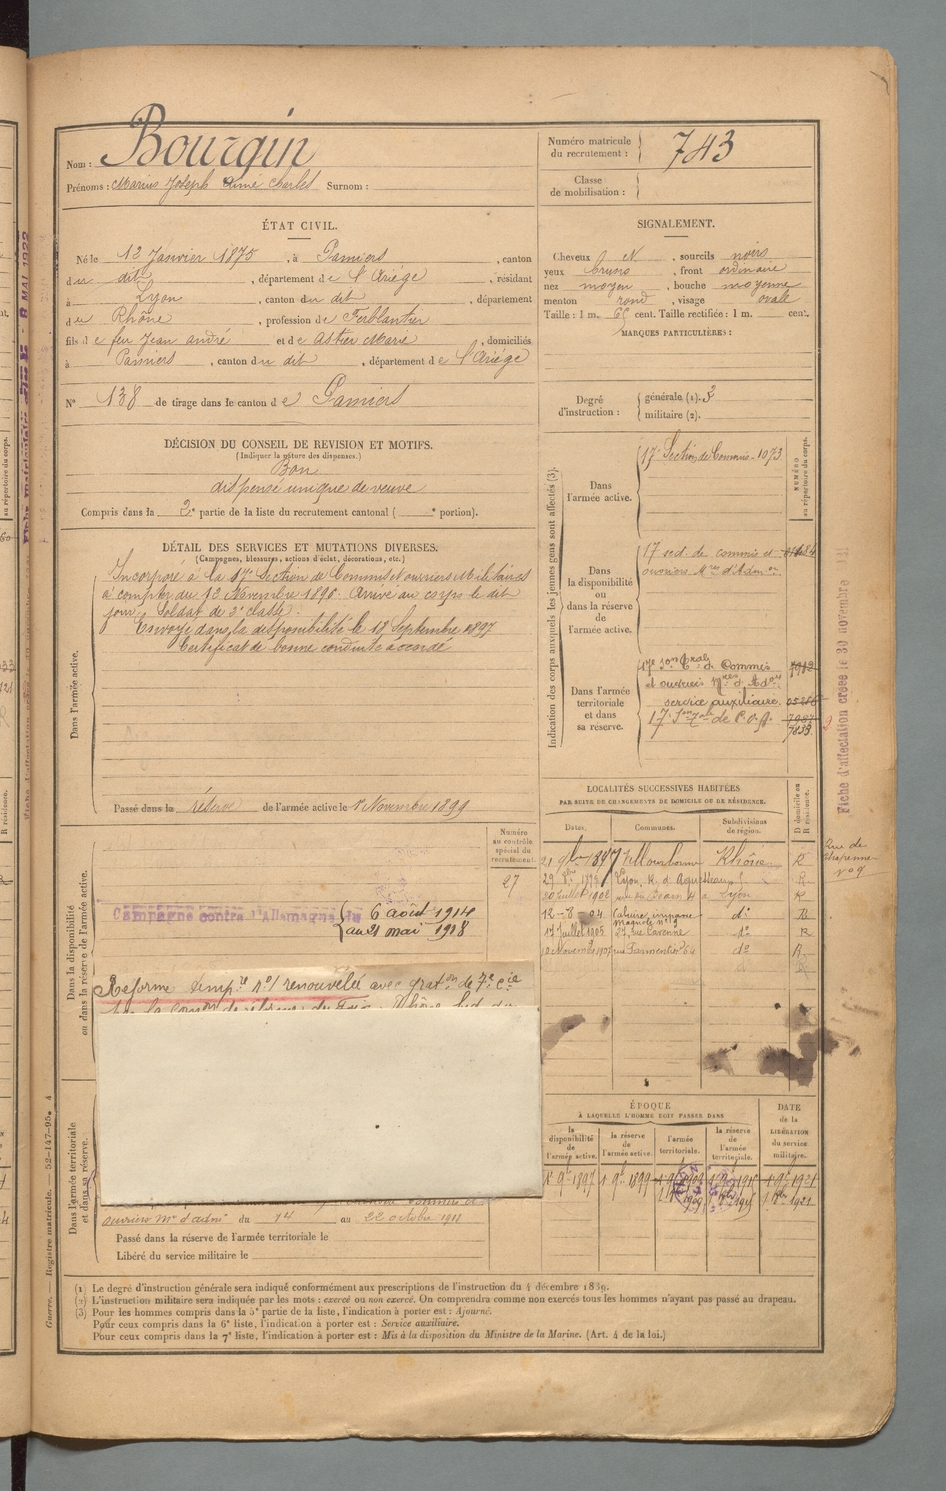 Nom : Bourgin
Prénoms : Marius Joseph Aimé Charles Surnom :
Numéro matricule du recrutement : 743
Classe de mobilisation :
ÉTAT CIVIL.
Né le 13 Janvier 1875, à Pamiers, canton
du dit, département de l'Ariège, résidant
à Lyon, canton du dit, département
du Rhône, profession de Ferblantier
fils de feu Jean andré et de Astier Marie, domiciliés
à Pamiers, canton du dit, département de l'Ariège
N° 138 de tirage dans le canton de Pamiers
SIGNALEMENT.
Cheveux N, sourcils noirs
yeux bruns, front ordinaire
nez moyen, bouche moyenne
menton rond, visage ovale
Taille : 1 m. 65 cent. Taille rectifiée : 1 m. cent.
MARQUES PARTICULIÈRES :
Degré d'instruction : générale (1). 3
militaire (2).
DÉCISION DU CONSEIL DE REVISION ET MOTIFS.
(Indiquer la nature des dispenses.)
Bon
dispensé unique de veuve
Compris dans la 2e partie de la liste du recrutement cantonal ( e portion).
DÉTAIL DES SERVICES ET MUTATIONS DIVERSES.
(Campagnes, blessures, actions d'éclat, décorations, etc.)
Dans l'armée active.
Incorporé à la 17e Section de Commis et ouvriers Militaires
à compter du 13 Novembre 1896. Arrivé au corps le dit
jour. Soldat de 2e classe.
Envoyé dans la disponibilité le 18 Septembre 1897
Certificat de bonne conduite accordé
Passé dans la réserve de l'armée active le 1er Novembre 1899
Indication des corps auxquels les jeunes gens sont affectés (3).
NUMÉRO au répertoire du corps.
Dans l'armée active.
17e Section de Commis - 1073
Dans la disponibilité ou dans la réserve de l'armée active.
17 sect. de commis et
ouvriers Mres d'Admon
Dans l'armée territoriale et dans sa réserve.
17e Son Trale de Commis
et ouvriers Mres d'Adon
service auxiliaire
17 Son Tre de C.O.A.
7833
Fiche d'affectation créée le 30 novembre
LOCALITÉS SUCCESSIVES HABITÉES
PAR SUITE DE CHANGEMENTS DE DOMICILE OU DE RÉSIDENCE.
Dates. Communes. Subdivisions de région. D domicile ou R résidence.
21 9bre 1897 Villeurbanne Rhône R
Lyon, R. d'Aguesseau R
20 Juillet 1902 Lyon R
12-8-04 Caluire, impasse Magnole n° 9 do R
17 Juillet 1905 27, rue Garenne do R
10 Novembre 1907 rue Parmentier 64 do R
Rue de
n° 9
Dans la disponibilité ou dans la réserve de l'armée active.
Numéro au contrôle spécial du recrutement.
27
Campagne contre l'Allemagne du 6 août 1914
au 21 mai 1918
Réforme tempre n° 1 renouvelée avec graton de 7e cie
Dans l'armée territoriale et dans sa réserve.
ouvriers Mres d'admon du 14 au 22 octobre 1911
Passé dans la réserve de l'armée territoriale le
Libéré du service militaire le
ÉPOQUE
À LAQUELLE L'HOMME DOIT PASSER DANS
la disponibilité de l'armée active. la réserve de l'armée active. l'armée territoriale. la réserve de l'armée territoriale. DATE de la LIBÉRATION du service militaire.
1er 9bre 1897 1 9bre 1899
(1) Le degré d'instruction générale sera indiqué conformément aux prescriptions de l'instruction du 4 décembre 1889.
(2) L'instruction militaire sera indiquée par les mots : exercé ou non exercé. On comprendra comme non exercés tous les hommes n'ayant pas passé au drapeau.
(3) Pour les hommes compris dans la 5e partie de la liste, l'indication à porter est : Ajourné.
Pour ceux compris dans la 6e liste, l'indication à porter est : Service auxiliaire.
Pour ceux compris dans la 7e liste, l'indication à porter est : Mis à la disposition du Ministre de la Marine. (Art. 4 de la loi.)
Guerre. — Registre matricule. — 52-147-95. 4